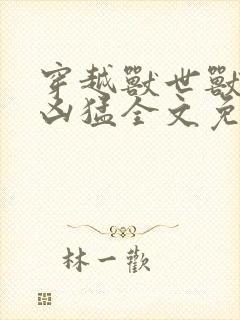 穿越獸世獸
凶猛全文免
林一歡